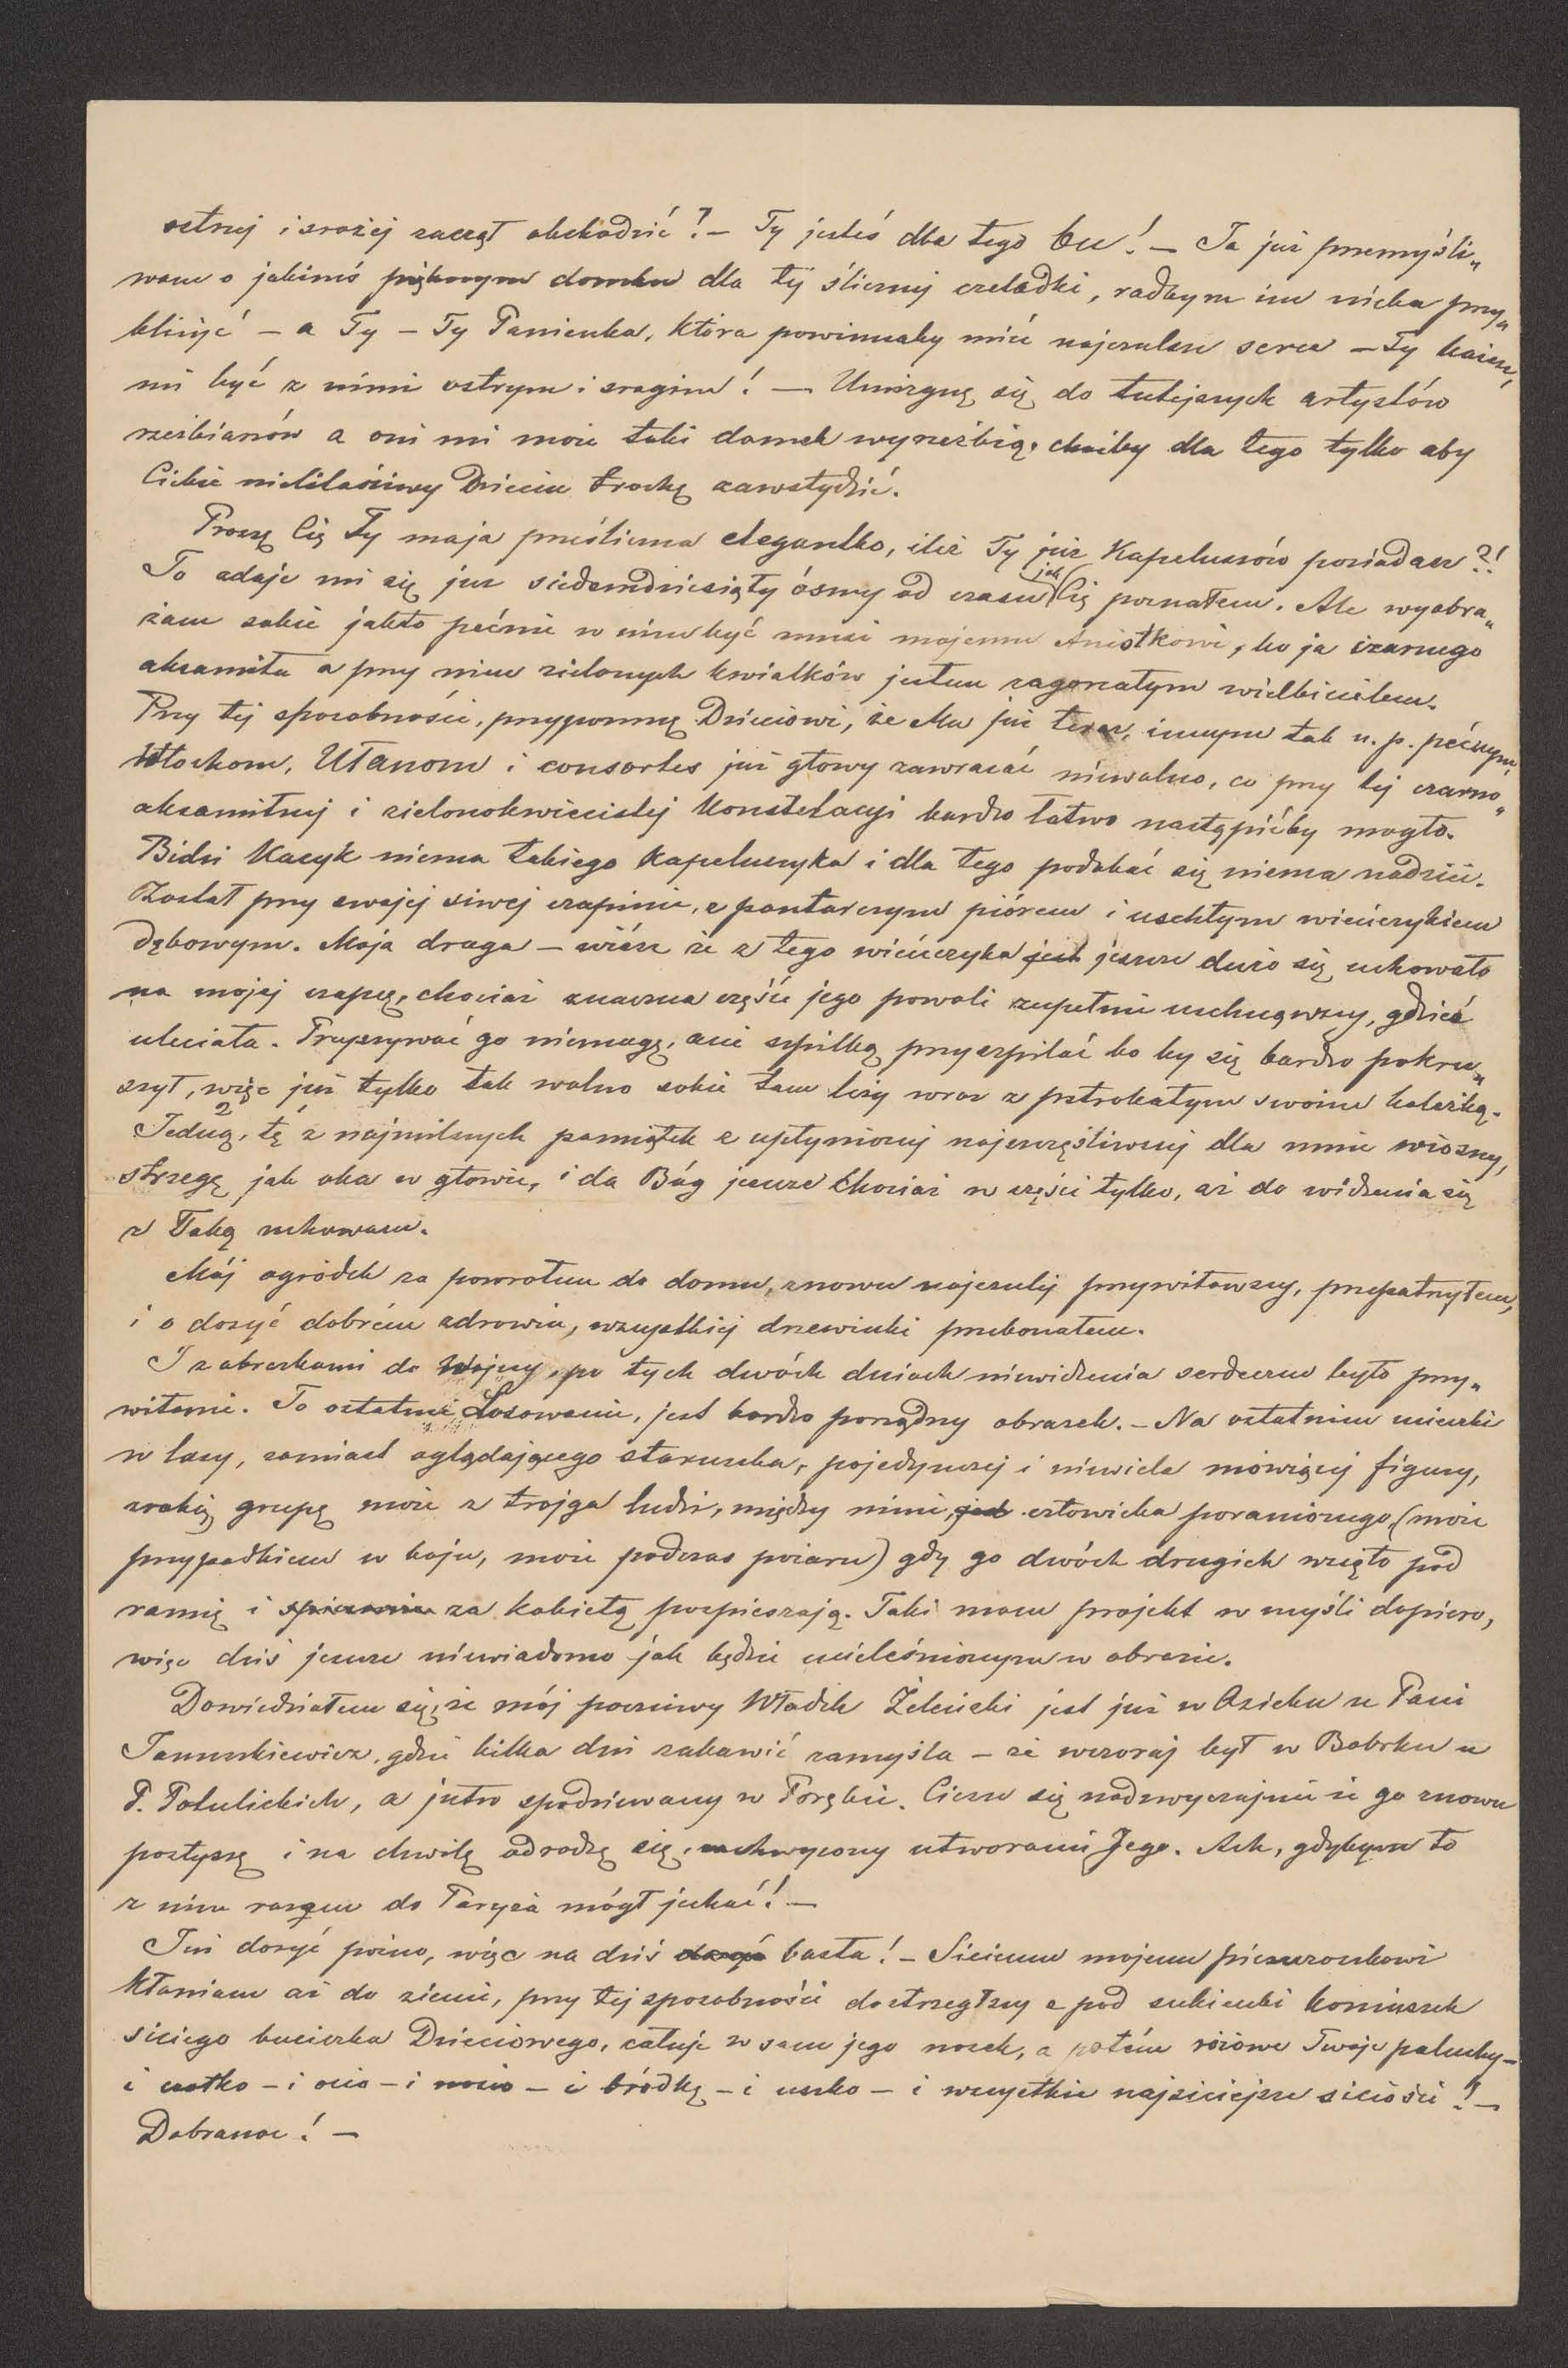 ostrzej i srożej zaczął obchodzić?— Ty jesteś dla tego be!— Ja już przemyśli„
wam o jakimś pięknym domku dla tej ślicznej czeladki, radbym im nieba przy„
bliżyć — a Ty — Ty Panienka, która powinnaby mieć najczulsze serce — Ty każesz
mi być z nimi ostrym i srogim! — Umizgnę się do tutejszych artystów
rzeźbiarów a oni mi może taki domek wyrzeźbią, choćby dla tego tylko aby
Ciebie nielitościwy Dzieciu trochę zawstydzić.
Proszę Cię Ty moja prześliczna elegantko, ileż Ty już Kapeluszów posiadasz?!
To zdaje mi się już siedemdziesiąty ósmy od czasu jak Cię poznałem. Ale wyobra„
żam sobie jakto pećnie w nim być musi mojemu Aniołkowi, bo ja czarnego
aksamitu a przy nim zielonych kwiatków jestem zagorzałym wielbicielem.
Przy tej sposobności, przypomnę Dzieciowi, że Mu już teraz, innym tak n. p. pećnym,
Włochom, Ułanom i consortes już głowy zawracać niewolno, co przy tej czarno„
aksamitnej i zielonokwiecistej Konstelacyi bardzo łatwo nastąpićby mogło.
Bidzi Kacyk niema takiego Kapeluszyka i dla tego podobać się niema nadziei.
Został przy swojej siwej czapinie, z pontarczym piórem i uschłym wieńczykiem
dębowym. Moja droga — wiész że z tego wieńczyka jest jeszcze dużo się uchowało
na mojej czapce, chociaż znaczna część jego powoli zupełnie uschnąwszy, gdzieś
uleciała. Przyszywać go niemogę, ani szpilką przyszpilać bo by się bardzo pokru„
szył, więc już tylko tak wolno sobie tam leży wraz z pstrokatym swoim koleżką.
Jedną, tę z najmilszych pamiątek z upłynionej najszczęśliwszej dla mnie wiosny,
strzegę jak oka w głowie, i da Bóg jeszcze chociaż w części tylko, aż do widzenia się
z Tobą uchowam.
Mój ogródek za powrotem do domu, znowu najczulej przywitawszy, przepatrzyłem,
i o dosyć dobrém zdrowiu, wszystkiej drzewinki przekonałem.
I z obrazkami do Wojny, po tych dwóch dniach niewidzenia serdeczne było przy„
witanie. To ostatnie Losowanie, jest bardzo porządny obrazek. — Na ostatnim ucieczki
w lasy, zamiast oglądającego staruszka, pojedynczej i niewiele mówiącej figury,
zrobię grupę może z trojga ludzi, między nimi, jed człowieka poranionego (może
przypadkiem w boju, może podczas pożaru) gdy go dwóch drugich wzięło pod
ramię i spieszenie za kobietą pospieszają. Taki mam projekt w myśli dopiero,
więc dziś jeszcze niewiadomo jak będzie ucieleśnionym w obrazie.
Dowiedziałem się, że mój poczciwy Władek Żeleński jest już w Osieku u Pani
Januszkiewicz, gdzie kilka dni zabawić zamyśla — że wczoraj był w Bobrku u
P. Potulickich, a jutro spodziewany w Porębie. Cieszę się nadzwyczajnie że go znowu
posłyszę i na chwilę odrodzę się, zachwycony utworami Jego. Ach, gdybym to
z nim razem do Paryża mógł jechać! —
Już dosyć późno, więc na dziś dosyć basta! — Siciemu mojemu pieszczoszkowi
kłaniam aż do ziemi, przy tej sposobności dostrzegłszy z pod sukienki koniuszek
siciego bucieczka Dzieciowego, całuję w sam jego nosek, a potém różowe Twoje paluchy —
i czołko — i ocio — i nocio — i bródkę — i uszko — i wszystkie najsiciejsze siciości! —
Dobranoc! —